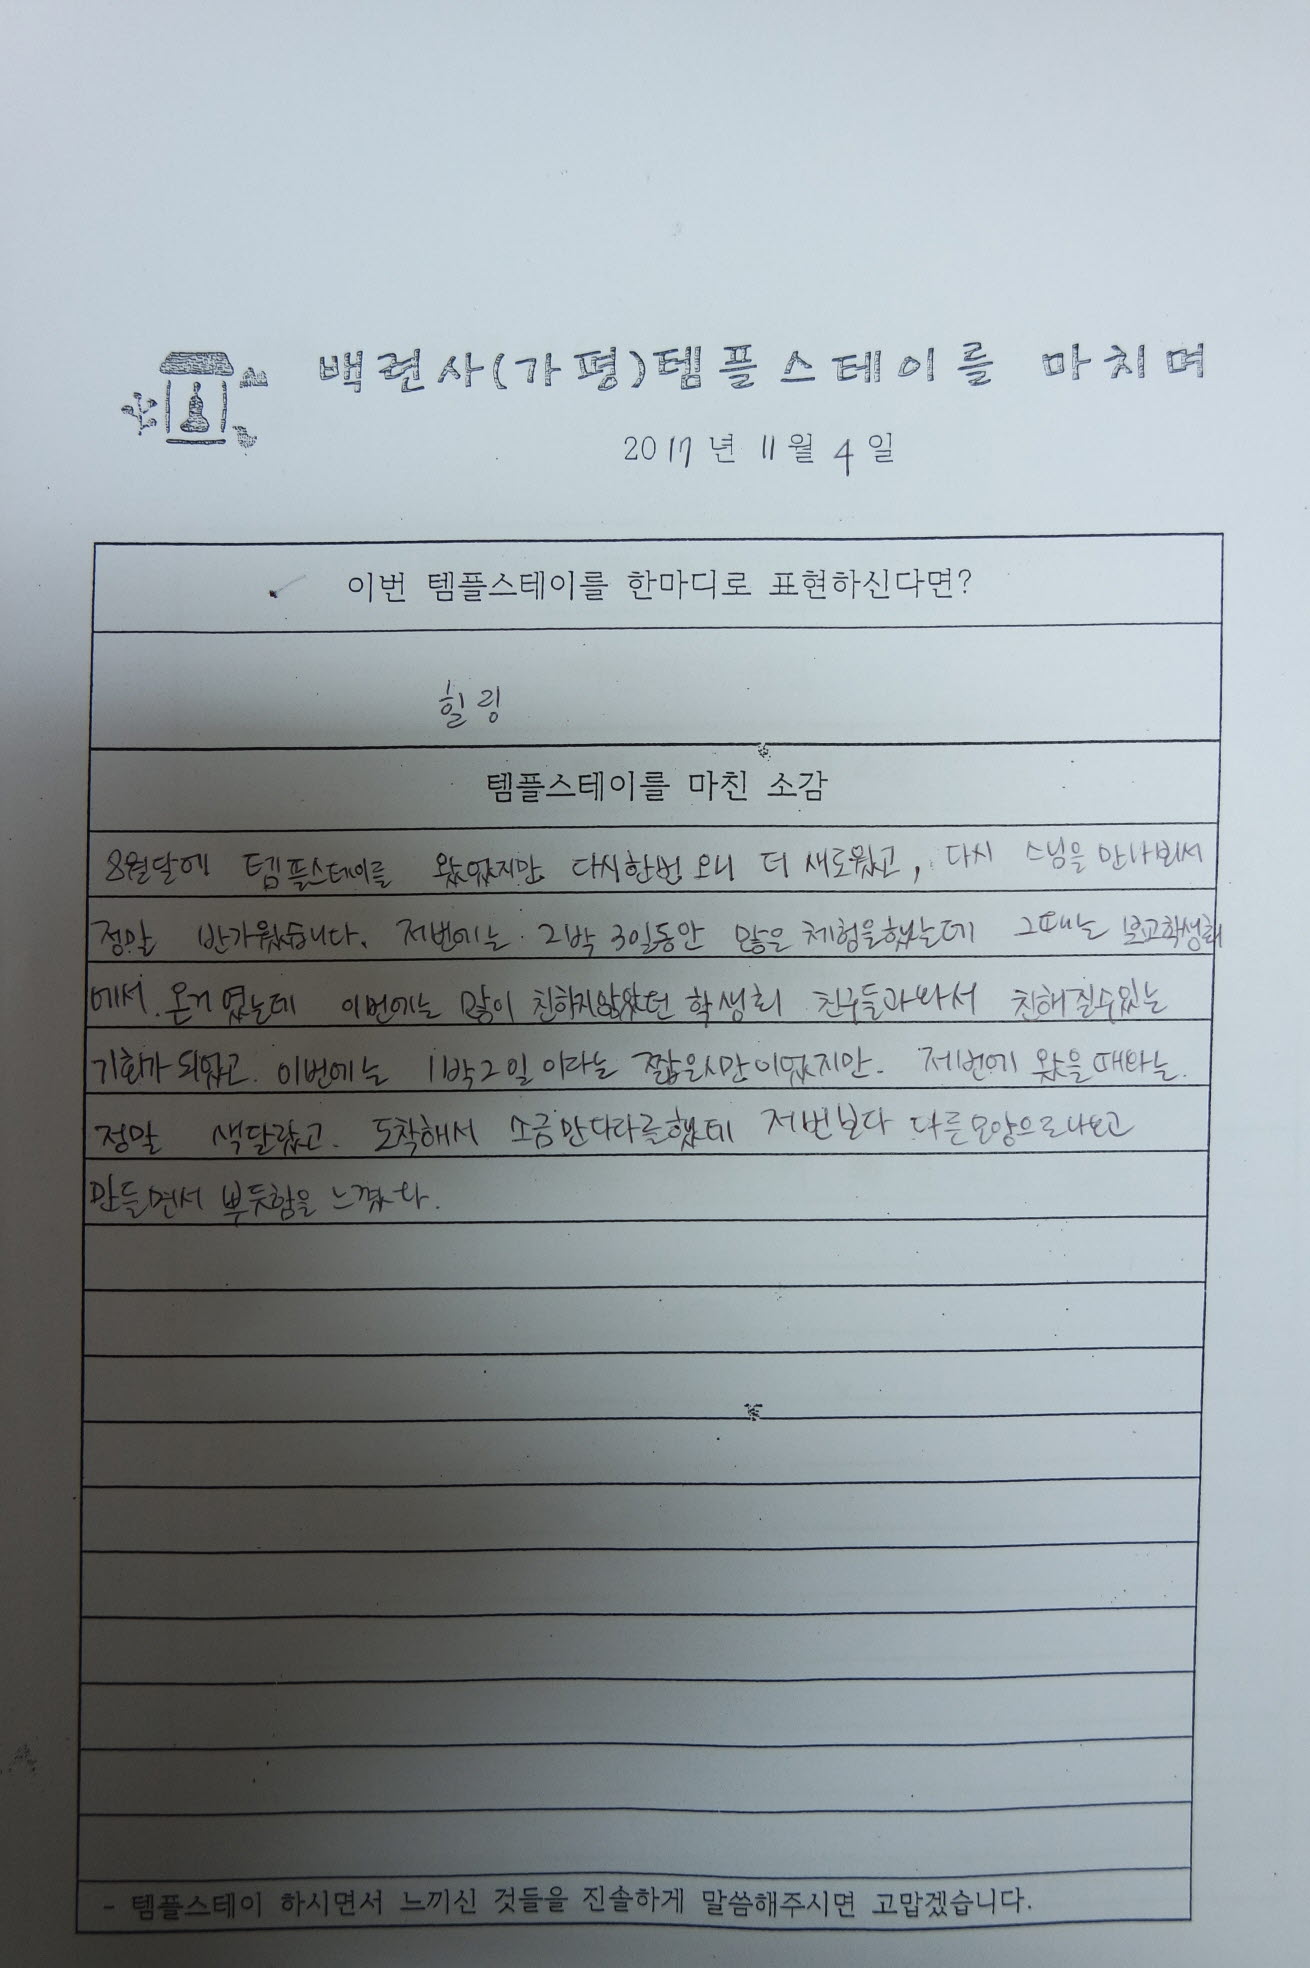 백련사(가평)템플스테이를 마치며
2017년 11월 4일
이번 템플스테이를 한마디로 표현하신다면?
힐링
템플스테이를 마친 소감
8월달에 템플스테이를 왔었지만 다시한번 오니 더 새로웠고, 다시 스님을 만나뵈서
정말 반가웠습니다. 저번에는 2박 3일동안 많은 체험을했는데 그때는 보고학생회
에서 온거 였는데 이번에는 많이 친하지않았던 학생회 친구들과와서 친해질수있는
기회가 되었고 이번에는 1박2일 이라는 짧은시간이었지만. 저번에 왔을때와는
정말 색달랐고. 도착해서 소금만다라를했는데 저번보다 다른모양으로나오고
만들면서 뿌듯함을 느꼈다.
- 템플스테이 하시면서 느끼신 것들을 진솔하게 말씀해주시면 고맙겠습니다.